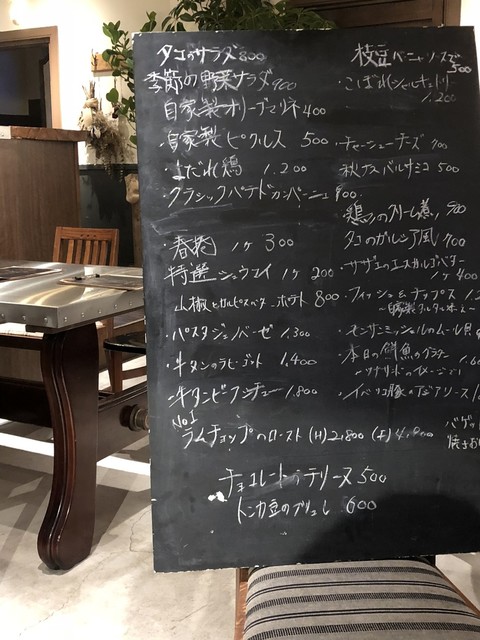 タコのサラダ 800
季節の野菜サラダ 900
自家製オリーブマリネ 400
・自家製ピクルス 500
・よだれ鶏 1.200
・クラシックパテドカンパーニュ 900
・春捲 1ケ 300
特選シュウマイ 1ケ 200
山椒とカルピスバターのポテト 800
・パスタジェノベーゼ 1,300
・牛タンのラビゴット 1,400
・牛タンビーフシチュー 1,800
No1
ラムチョップのロースト (H) 2,800 (F)
チョコレートテリーヌ 500
トンカ豆のブリュレ 600
枝豆バーニャソースで 500
・こぼれシャルキュトリー 1.200
・チャーシューチーズ 700
秋ナスバルサミコ 500
・鶏レバーのクリーム煮
タコのガルシア風 900
・サザエのエスカルゴバター 1ケ 400
・フィッシュ&チップス 1.2
〜自家製タルタルソース〜
・モンサンミッシェルのムール貝
・本日の鮮魚のグラタン 1.6
〜ブリザードのイメージで〜
・イベリコ豚の
バゲッ
焼き